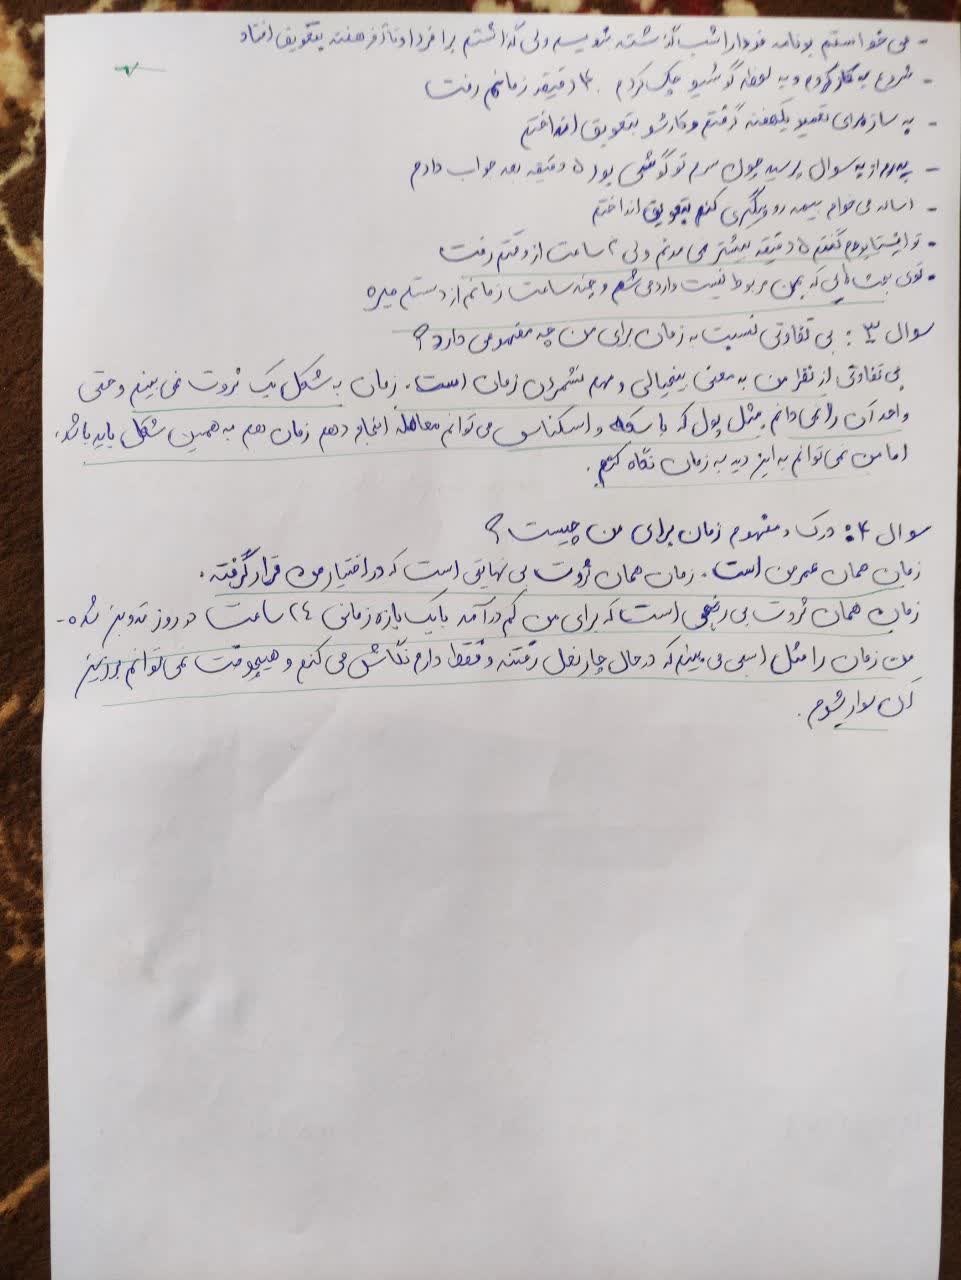 - می خواستم برنامه فردا را شب گذشته بنویسم ولی گذاشتم برا فردا و تا آخر هفته بتعویق افتاد
- شروع به کار کردم و یه لحظه گوشیو چک کردم ۴۰ دقیقه زمانم رفت
- یه ساز برای تعمیر یکهفته گرفتم و کارشو بتعویق انداختم
- پدرم ازم یه سوال پرسید چون سرم تو گوشی بود ۵ دقیقه بعد جواب دادم
- امساله می خوام بیمه رو پیگیری کنم بتعویق انداختم
• تو اینستا بودم گفتم ۵ دقیقه بیشتر می مونم ولی ۲ ساعت از وقتم رفت
• توی بحث هایی که بمن مربوط نیست وارد می شم و چند ساعت زمانم از دستم میره
سوال ۳: بی تفاوتی نسبت به زمان برای من چه مفهومی دارد؟
بی تفاوتی از نظر من به معنی بیخیالی و مهم نشمردن زمان است. زمان به شکل یک ثروت نمی بینم و حتی
واحد آن را نمی دانم مثل پول که با سکه و اسکناس می توانم معامله انجام دهم زمان هم به همین شکل باید باشد.
اما من نمی توانم به این دید به زمان نگاه کنم.
سوال ۴: درک و مفهوم زمان برای من چیست؟
زمان همان عمر من است. زمان همان ثروت بی نهایتی است که در اختیار من قرار گرفته.
زمان همان ثروت بی رنجی است که برای من کم درآمد با یک بازه زمانی ۲۴ ساعت در روز تدوین شده.
من زمان را مثل اسبی می بینم که در حال چارنعل رفتنه و فقط دارم نگاش می کنم و هیچوقت نمی توانم بر زین
آن سوار شوم.